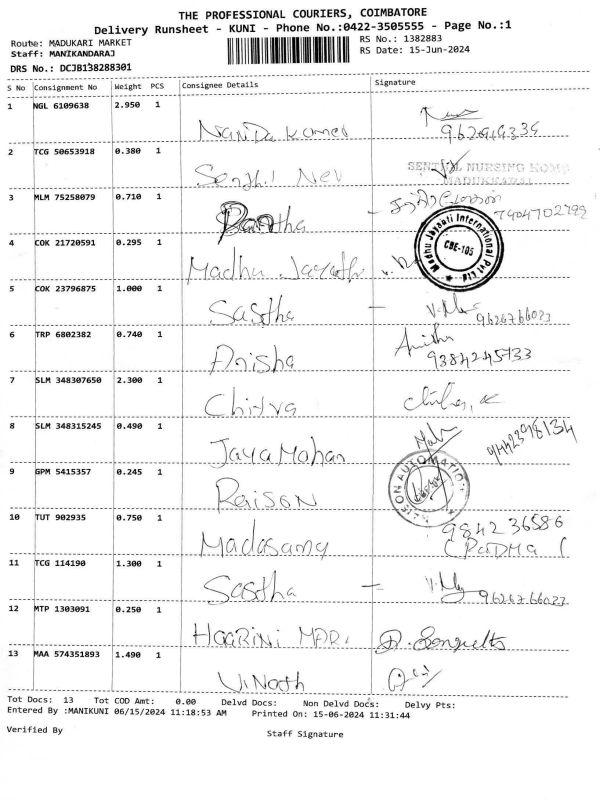 THE PROFESSIONAL COURIERS, COIMBATORE
Delivery Runsheet - KUNI - Phone No.:0422-3505555 - Page No.:1
Route: MADUKARI MARKET RS No.: 1382883
Staff: MANIKANDARAJ RS Date: 15-Jun-2024
DRS No.: DCJB138288301
S No Consignment No Weight PCS Consignee Details Signature
1 NGL 6109638 2.950 1
Nanda Kumar
2 TCG 50653918 0.380 1
SENTHIL NURSING HOME
MADUKKARAI
3 MLM 75258079 0.710 1
7904702799
4 COK 21720591 0.295 1
Madhu Jayanthi Madhu Jayanti International Pvt Ltd CBE-105
5 COK 23796875 1.000 1
Sastha - 9626766023
6 TRP 6802382 0.740 1
Anisha 9384245733
7 SLM 348307650 2.300 1
Chitra
8 SLM 348315245 0.490 1
Jaya Mohan 9442398134
9 GPM 5415357 0.245 1
Raison RAISON AUTOMATION
10 TUT 902935 0.750 1
Madasamy 984236586
11 TCG 114190 1.300 1
Sastha - 9626766023
12 MTP 1303091 0.250 1
HAARINI MARI
13 MAA 574351893 1.490 1
Vinoth
Tot Docs: 13 Tot COD Amt: 0.00 Delvd Docs: Non Delvd Docs: Delvy Pts:
Entered By :MANIKUNI 06/15/2024 11:18:53 AM Printed On: 15-06-2024 11:31:44
Verified By Staff Signature